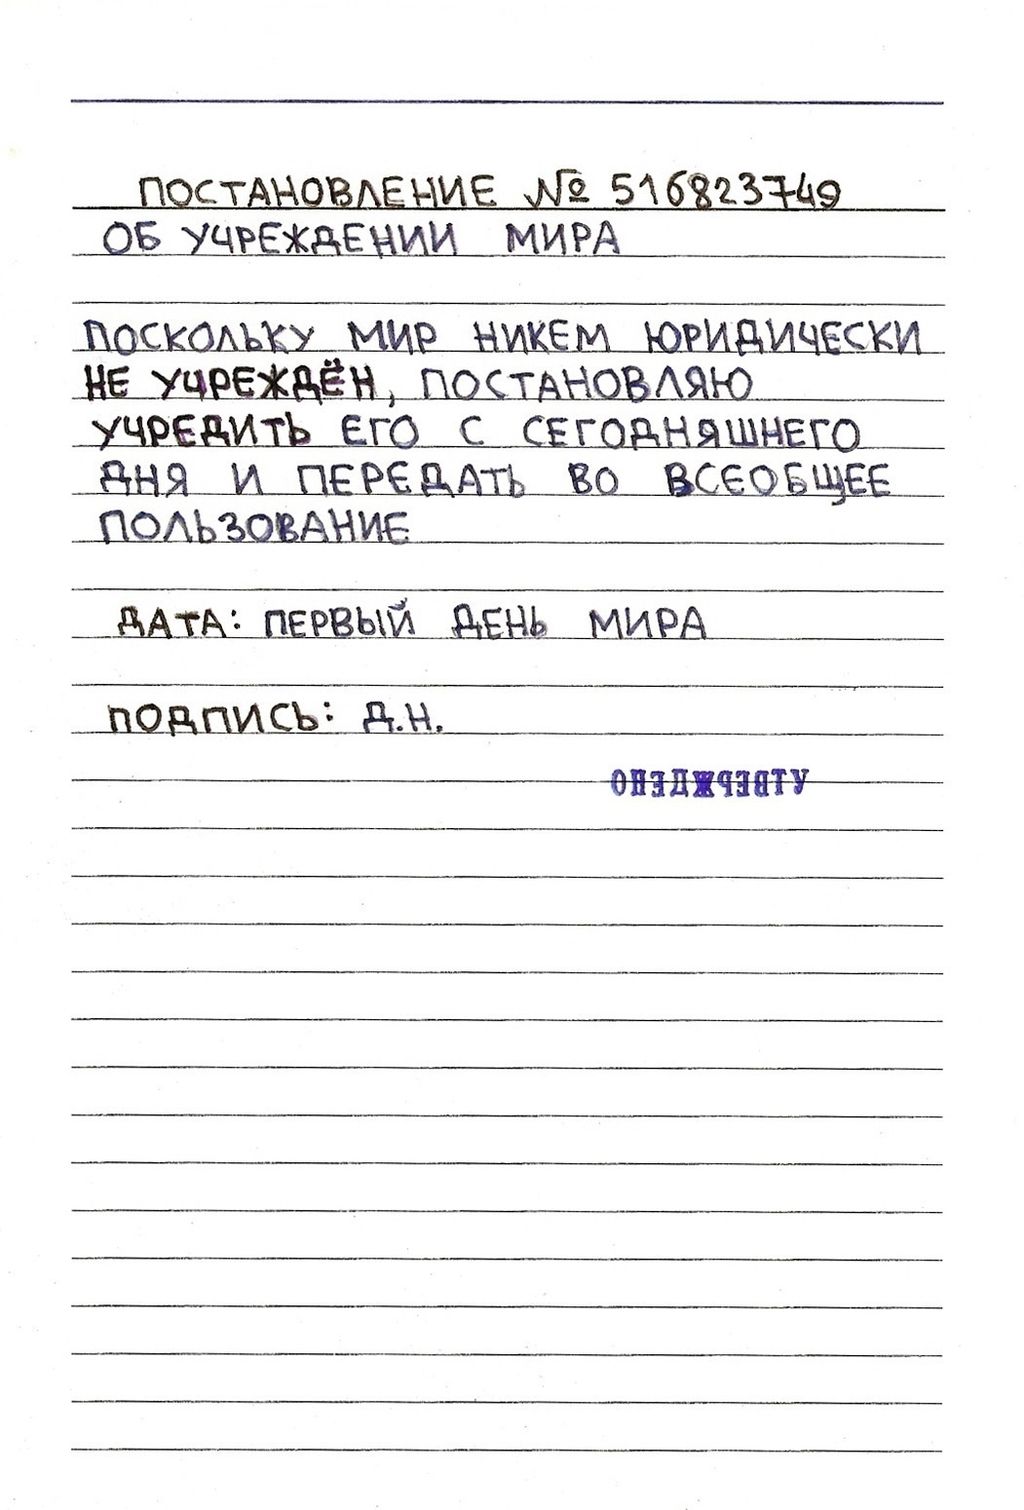 ПОСТАНОВЛЕНИЕ № 516823749
ОБ УЧРЕЖДЕНИИ МИРА
ПОСКОЛЬКУ МИР НИКЕМ ЮРИДИЧЕСКИ
НЕ УЧРЕЖДЁН, ПОСТАНОВЛЯЮ
УЧРЕДИТЬ ЕГО С СЕГОДНЯШНЕГО
ДНЯ И ПЕРЕДАТЬ ВО ВСЕОБЩЕЕ
ПОЛЬЗОВАНИЕ
ДАТА: ПЕРВЫЙ ДЕНЬ МИРА
ПОДПИСЬ: Д.Н.
УТВЕРЖДЕНО